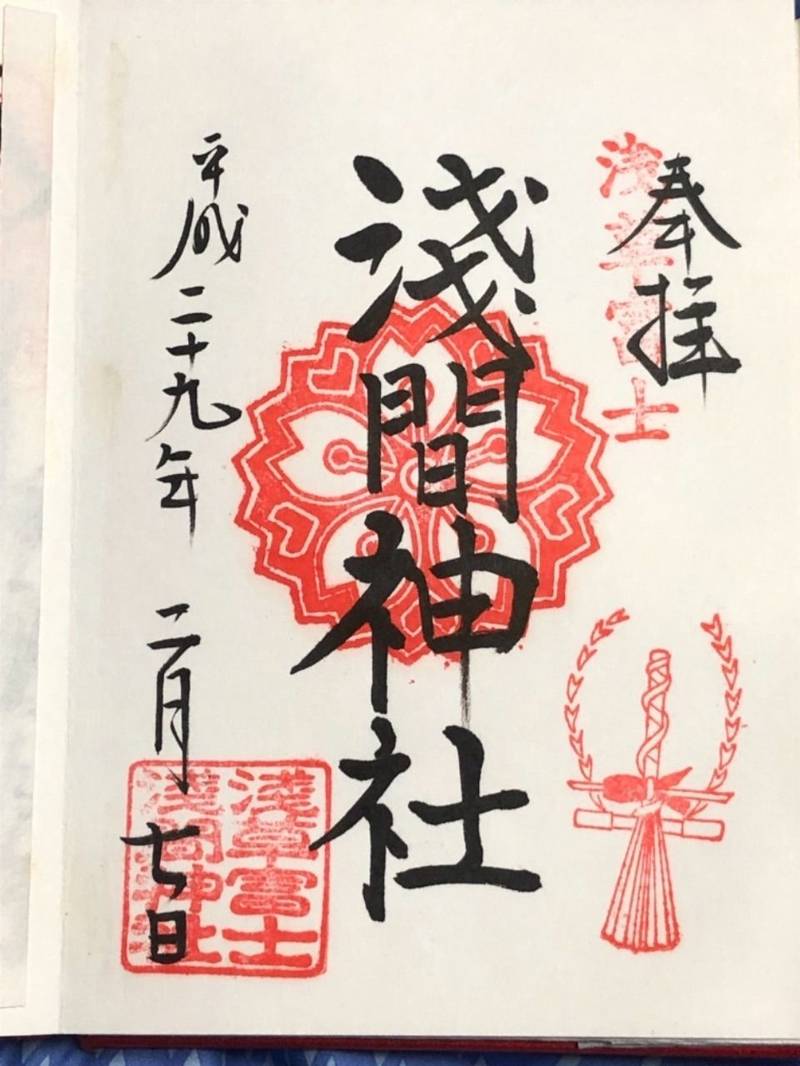 奉拝
浅草富士
淺間神社
平成二十九年 二月 七日
淺草富士
淺間神社